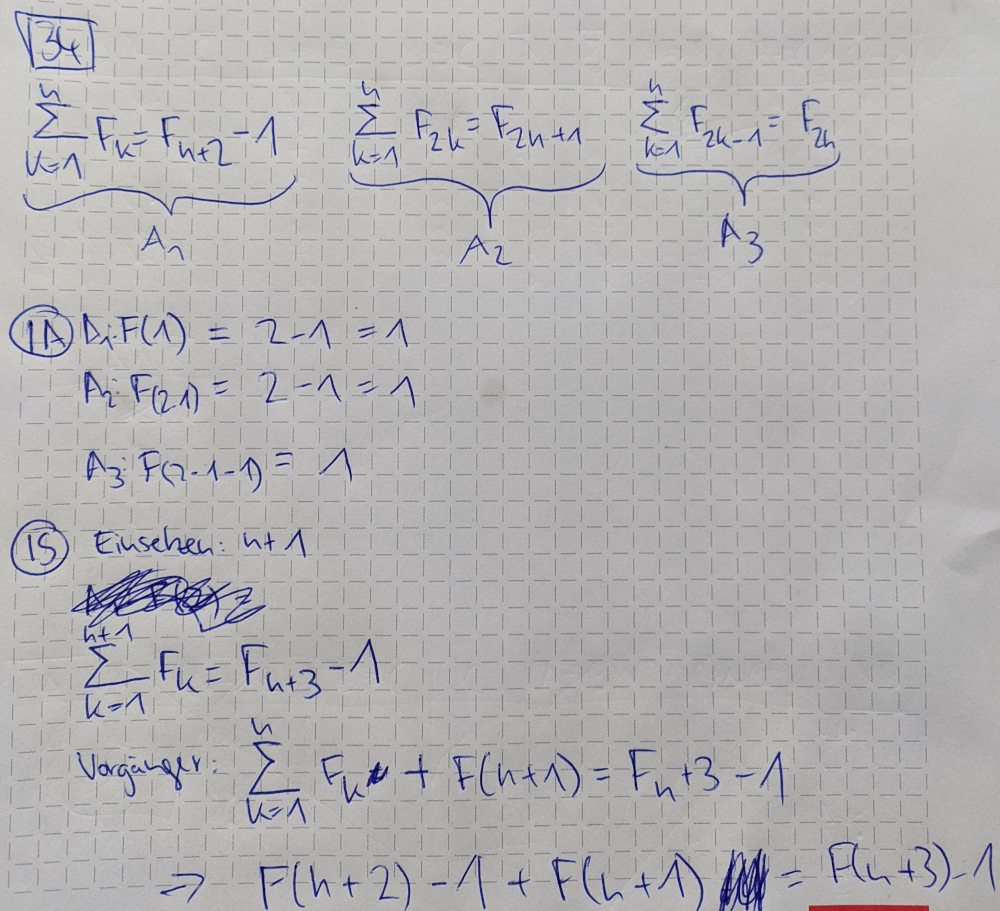 34
∑_{k=1}^{n} F_k = F_{n+2} - 1   ∑_{k=1}^{n} F_{2k} = F_{2n+1}   ∑_{k=1}^{n} F_{2k-1} = F_{2n}
A_1   A_2   A_3
IA A_1: F(1) = 2 - 1 = 1
A_2: F(2·1) = 2 - 1 = 1
A_3: F(2·1-1) = 1
IS Einsetzen: n+1
∑_{k=1}^{n+1} F_k = F_{n+3} - 1
Vorgänger: ∑_{k=1}^{n} F_k + F(n+1) = F_n+3 - 1
⇒ F(n+2) - 1 + F(n+1) = F(n+3) - 1